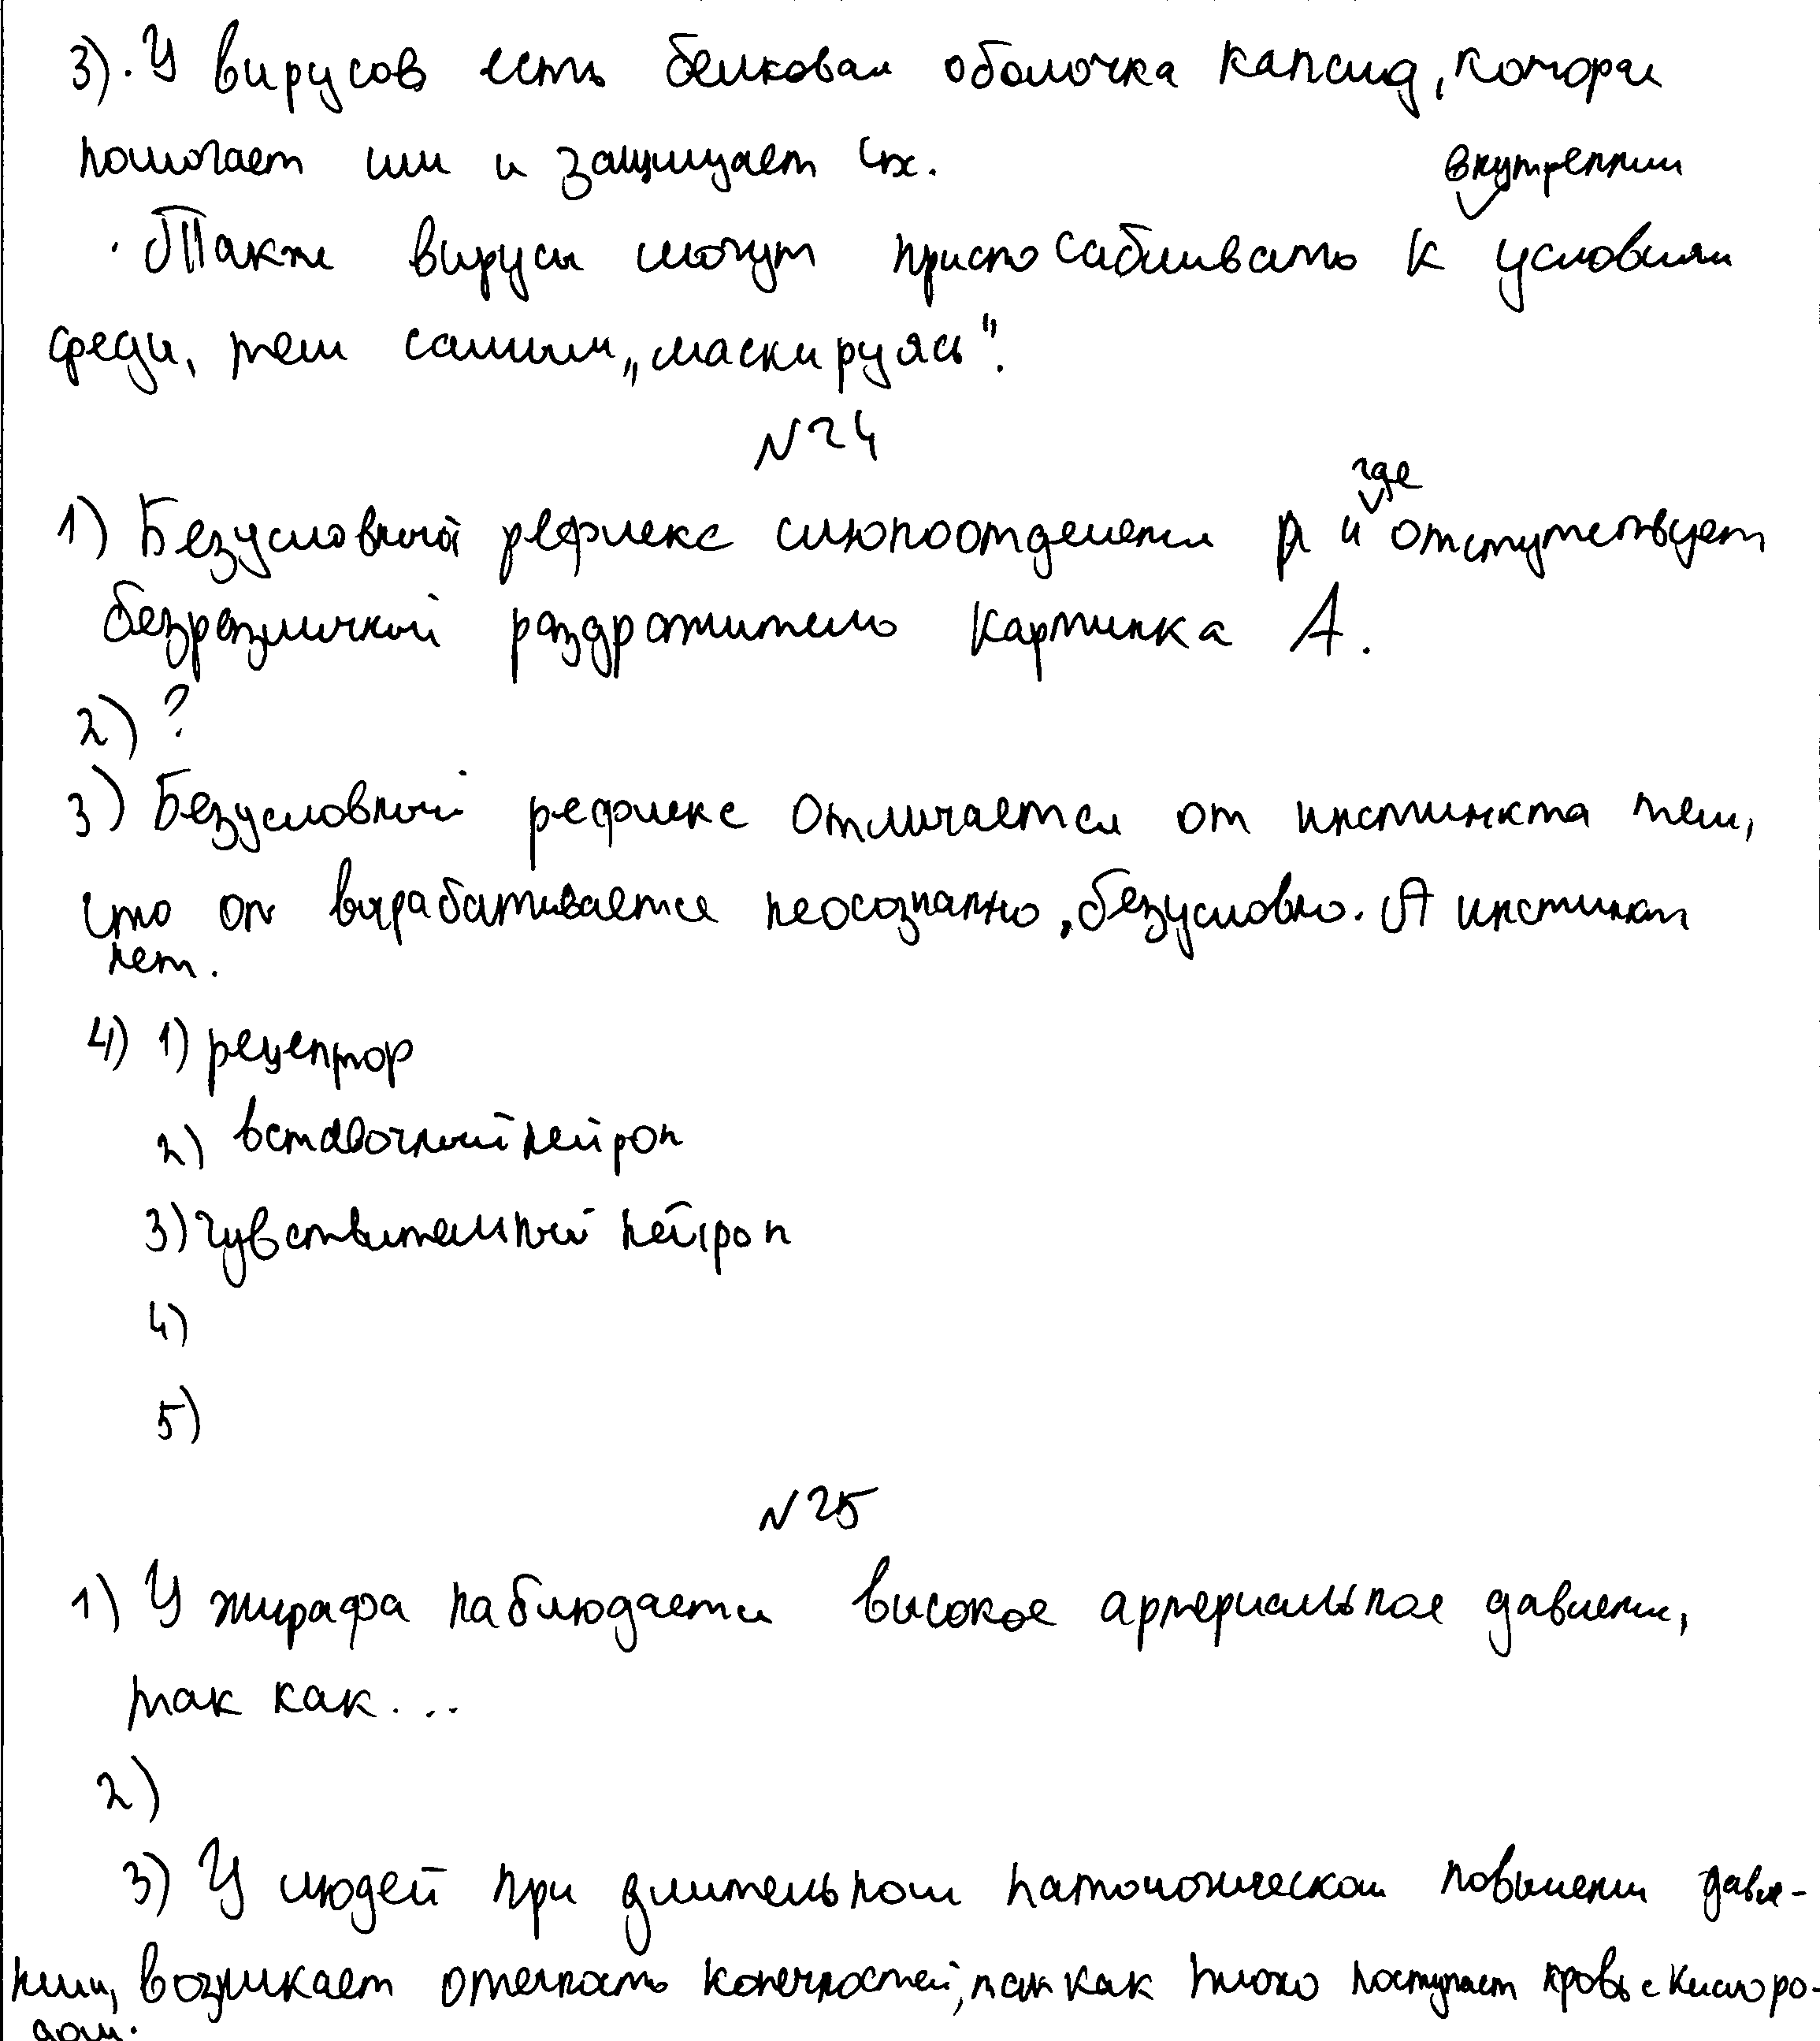 3). У вирусов есть белковая оболочка капсид, которая
помогает им и защищает их.
внутренним
· Также вирусы могут приспосабливать к условиям
среды, тем самым „маскируясь".
№24
1) Безусловный рефлекс слюноотделения и где отсутствует
безразличный раздражитель картинка А.
2) ?
3) Безусловный рефлекс отличается от инстинкта тем,
что он вырабатывается неосознанно, безусловно. А инстинкт
нет.
4) 1) рецептор
2) вставочный нейрон
3) чувствительный нейрон
4)
5)
№25
1) У жирафа наблюдается высокое артериальное давление,
так как...
2)
3) У людей при длительном патологическом повышении давле-
нии, возникает отечность конечностей, так как плохо поступает кровь с кислоро-
дом.